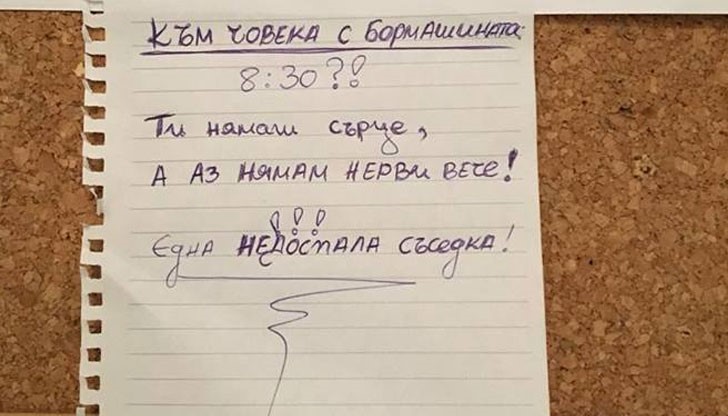 Към човека с бормашината:
8:30?!
Ти нямаш сърце,
А АЗ НЯМАМ НЕРВИ ВЕЧЕ!
!!!
Една НЕДОСПАЛА съседка!